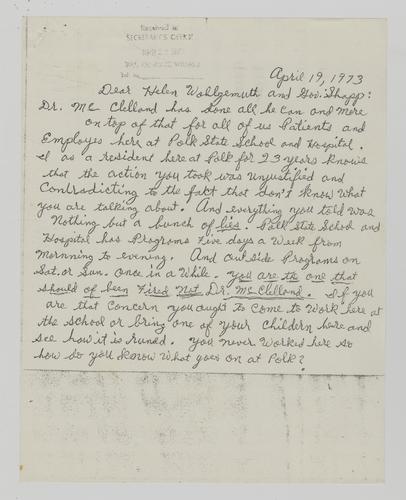 Received in
SECRETARY'S OFFICE
April 19, 1973
Dear Helen Wohlgemuth and Gov. Shapp:
Dr. Mc Clelland has done all he can and more
on top of that for all of us Patients and
Employes here at Polk State School and Hospital.
I as a resident here at Polk for 23 years knows
that the action you took was unjustified and
Contradicting to the fact that don't know what
you are talking about. And everything you told was
Nothing but a bunch of lies. Polk State School and
Hospital has Programs Five days a Week from
Mornning to evening. And outside Programs on
Sat. or Sun. Once in a While. you are the one that
should of been Fired Not Dr. Mc Clelland. If you
are that concern you ought to come to Work here at
the school or bring one of your childern here and
see how it is runed. You never Worked here so
how do you know What goes on at Polk?